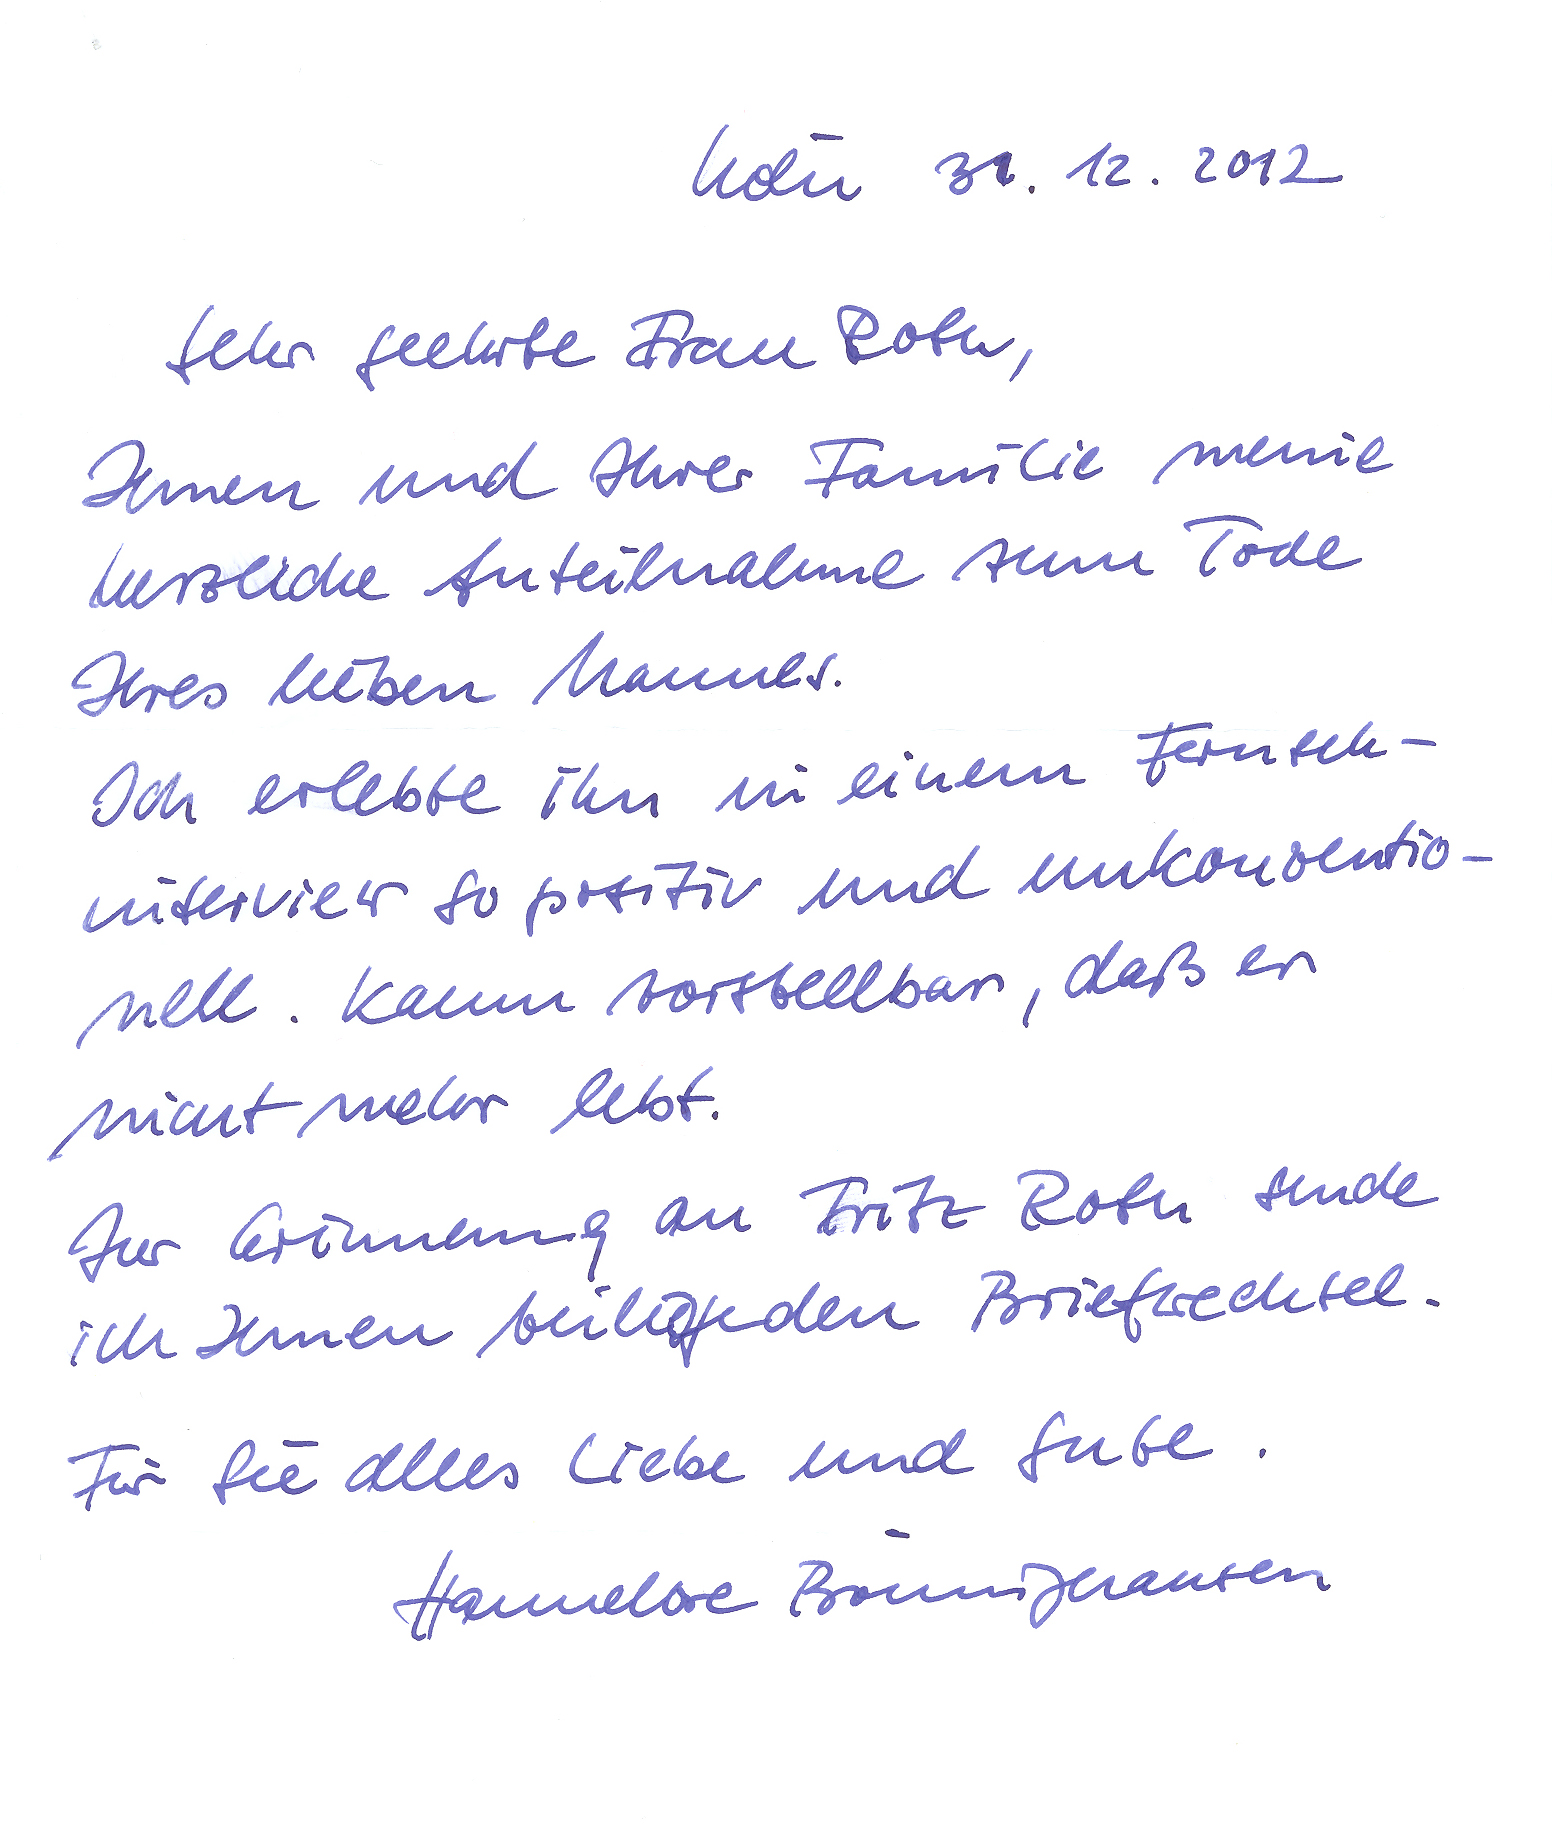 Köln 31. 12. 2012
Sehr geehrte Frau Roth,
Ihnen und Ihrer Familie meine
herzliche Anteilnahme zum Tode
Ihres lieben Mannes.
Ich erlebte ihn in einem Fernseh-
interview so positiv und unkonventio-
nell. Kaum vorstellbar, daß er
nicht mehr lebt.
Zur Erinnerung an Fritz Roth sende
ich Ihnen beiliegenden Briefwechsel.
Für Sie alles Liebe und Gute.
Hannelore Brönighausen